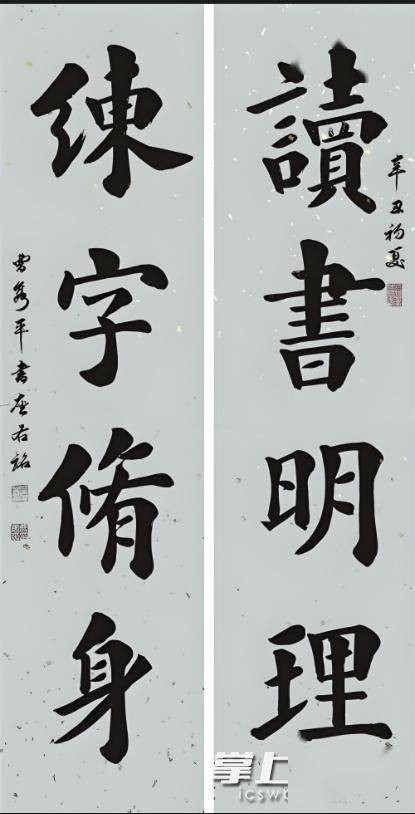 讀書明理
辛丑初夏
練字脩身
曹雋平書座右銘
掌上
icsw